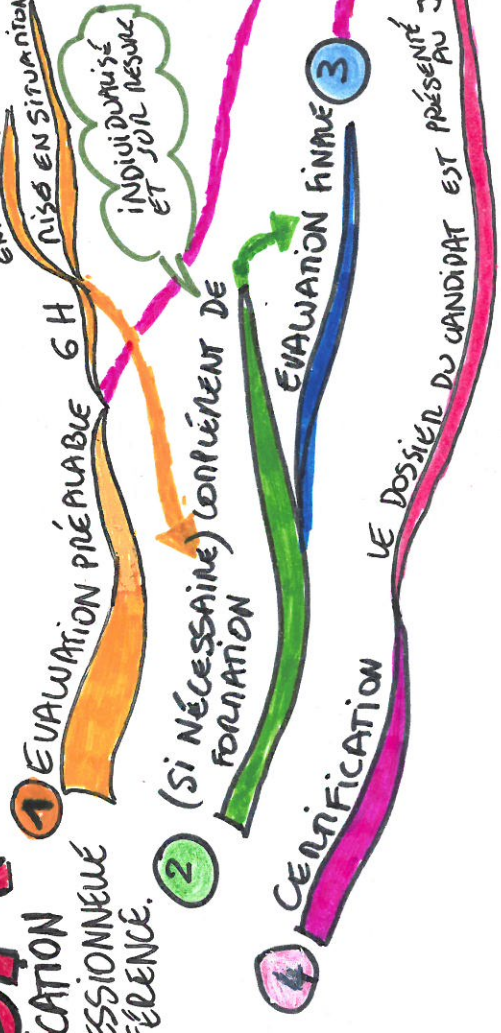 CATION
SSIONNELLE
ÉRENCE.
1 EVALUATION PRÉALABLE 6H
MISE EN SITUATION
INDIVIDUALISÉ
ET SUR MESURE
2 (SI NÉCESSAIRE) COMPLÉMENT DE
FORMATION
EVALUATION FINALE 3
4 CERTIFICATION
LE DOSSIER DU CANDIDAT EST PRÉSENTÉ
AU